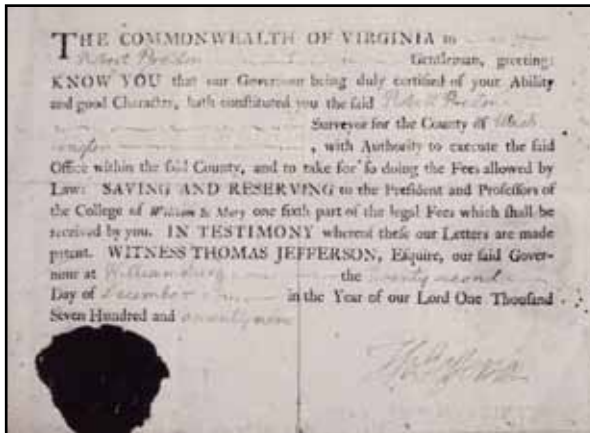 THE COMMONWEALTH OF VIRGINIA to
Robert Preston Gentleman, greeting:
KNOW YOU that our Governour being duly certified of your Ability
and good Character, hath constituted you the said Robert Preston
Surveyor for the County of Wash
ington , with Authority to execute the said
Office within the said County, and to take for so doing the Fees allowed by
Law: SAVING AND RESERVING to the President and Professors of
the College of William & Mary one sixth part of the legal Fees which shall be
received by you. IN TESTIMONY whereof these our Letters are made
patent. WITNESS THOMAS JEFFERSON, Esquire, our said Gover-
nour at Williamsburg the twenty second
Day of December in the Year of our Lord One Thousand
Seven Hundred and seventy nine
Th Jefferson